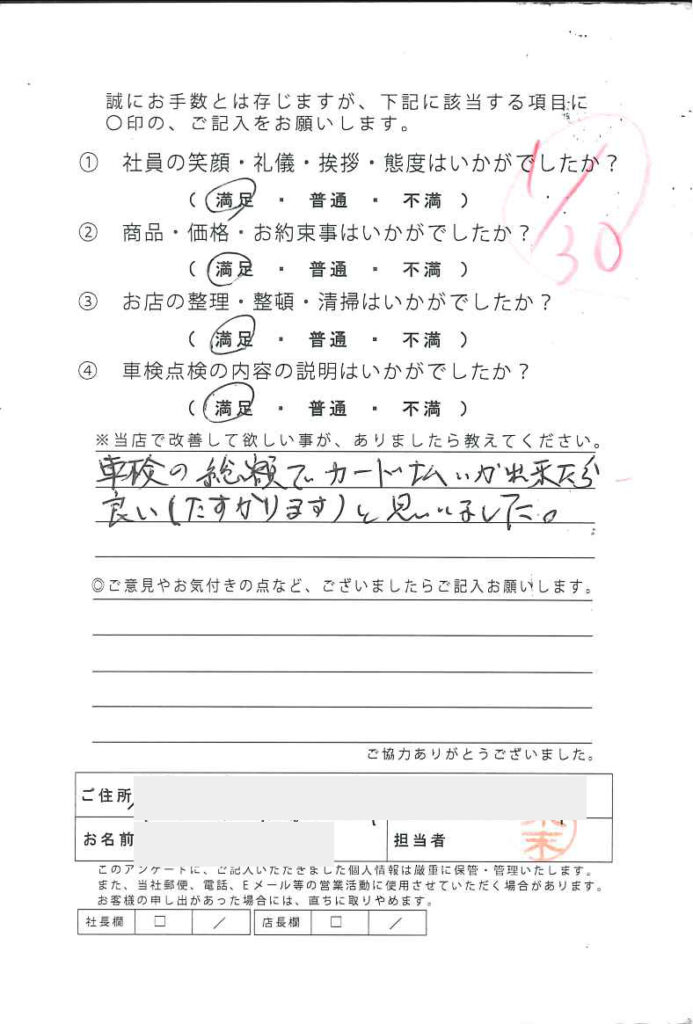 誠にお手数とは存じますが、下記に該当する項目に
〇印の、ご記入をお願いします。
1/30
① 社員の笑顔・礼儀・挨拶・態度はいかがでしたか？
( 満足 ・ 普通 ・ 不満 )
② 商品・価格・お約束事はいかがでしたか？
( 満足 ・ 普通 ・ 不満 )
③ お店の整理・整頓・清掃はいかがでしたか？
( 満足 ・ 普通 ・ 不満 )
④ 車検点検の内容の説明はいかがでしたか？
( 満足 ・ 普通 ・ 不満 )
※当店で改善して欲しい事が、ありましたら教えてください。
車検の総額でカード払いが出来たら
良い(たすかります)と思いました。
◎ご意見やお気付きの点など、ございましたらご記入お願いします。
ご協力ありがとうございました。
ご住所
お名前 担当者
このアンケートに、ご記入いただきました個人情報は厳重に保管・管理いたします。
また、当社郵便、電話、Eメール等の営業活動に使用させていただく場合があります。
お客様の申し出があった場合には、直ちに取りやめます。
社長欄 □ / 店長欄 □ /